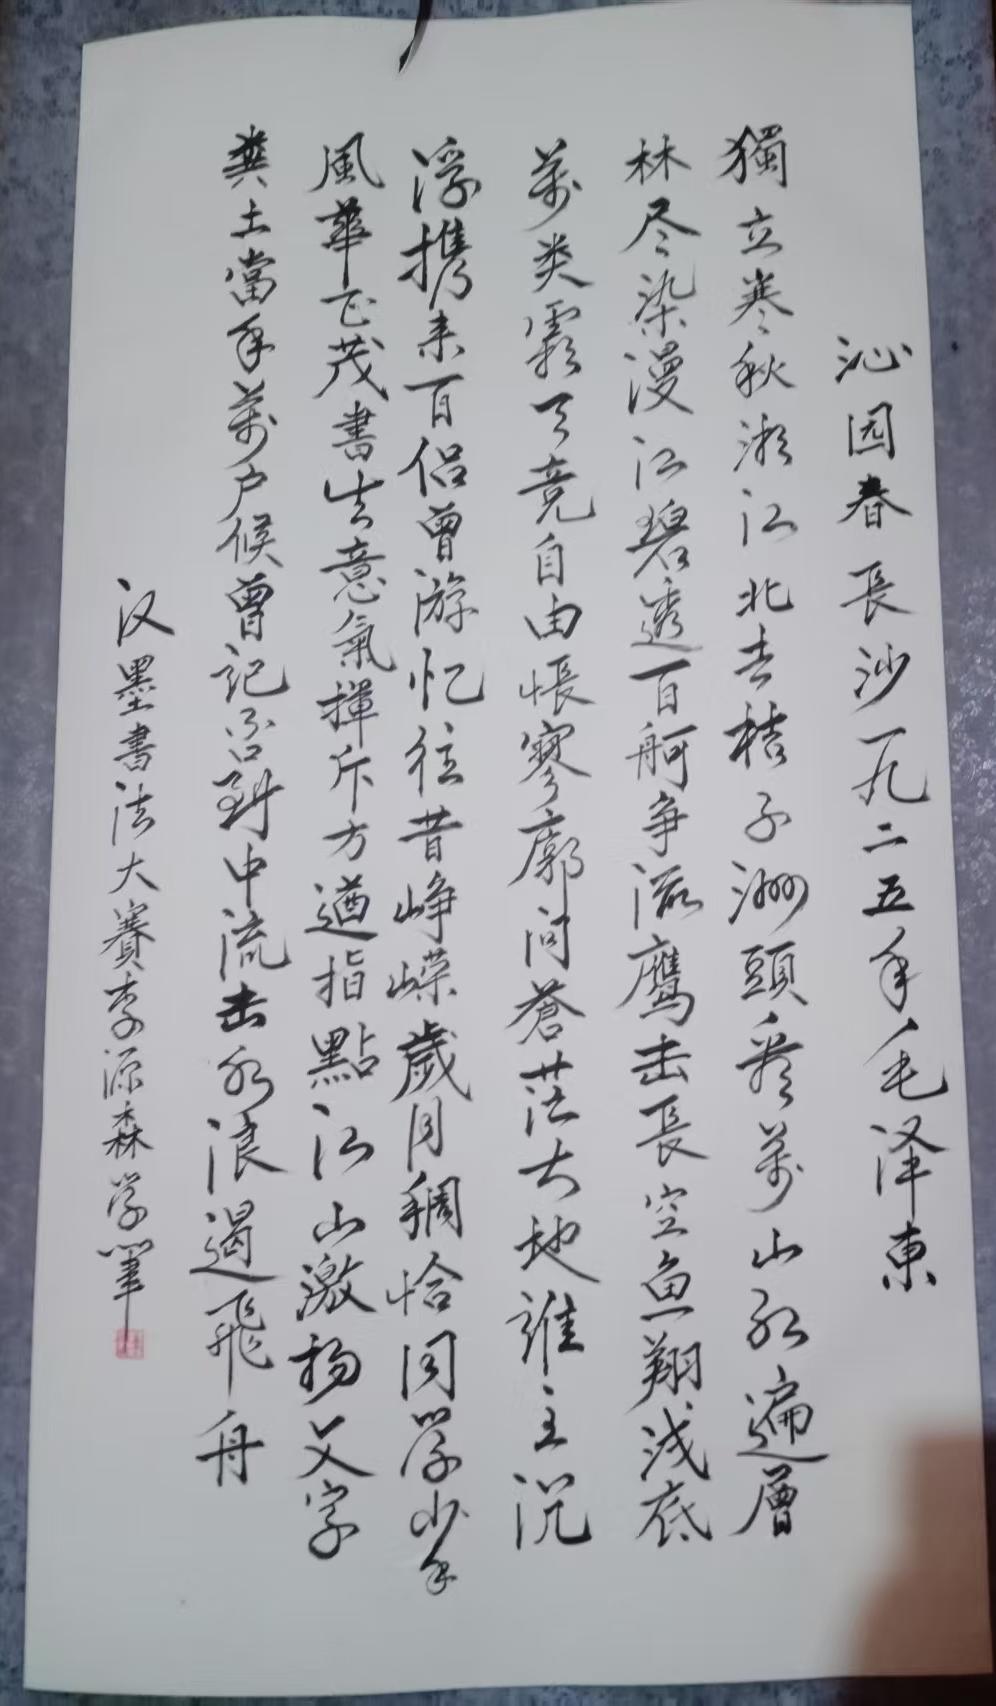 沁园春長沙一九二五年毛泽東
獨立寒秋湘江北去橘子洲頭看萬山红遍層
林尽染漫江碧透百舸争流鹰击長空鱼翔浅底
萬类霜天竞自由悵寥廓问蒼茫大地誰主沉
浮携来百侣曾游忆往昔峥嵘歲月稠恰同学少年
風華正茂書生意氣揮斥方遒指點江山激扬文字
粪土當年萬户候曾记否到中流击水浪遏飛舟
汉墨書法大賽李源森学筆